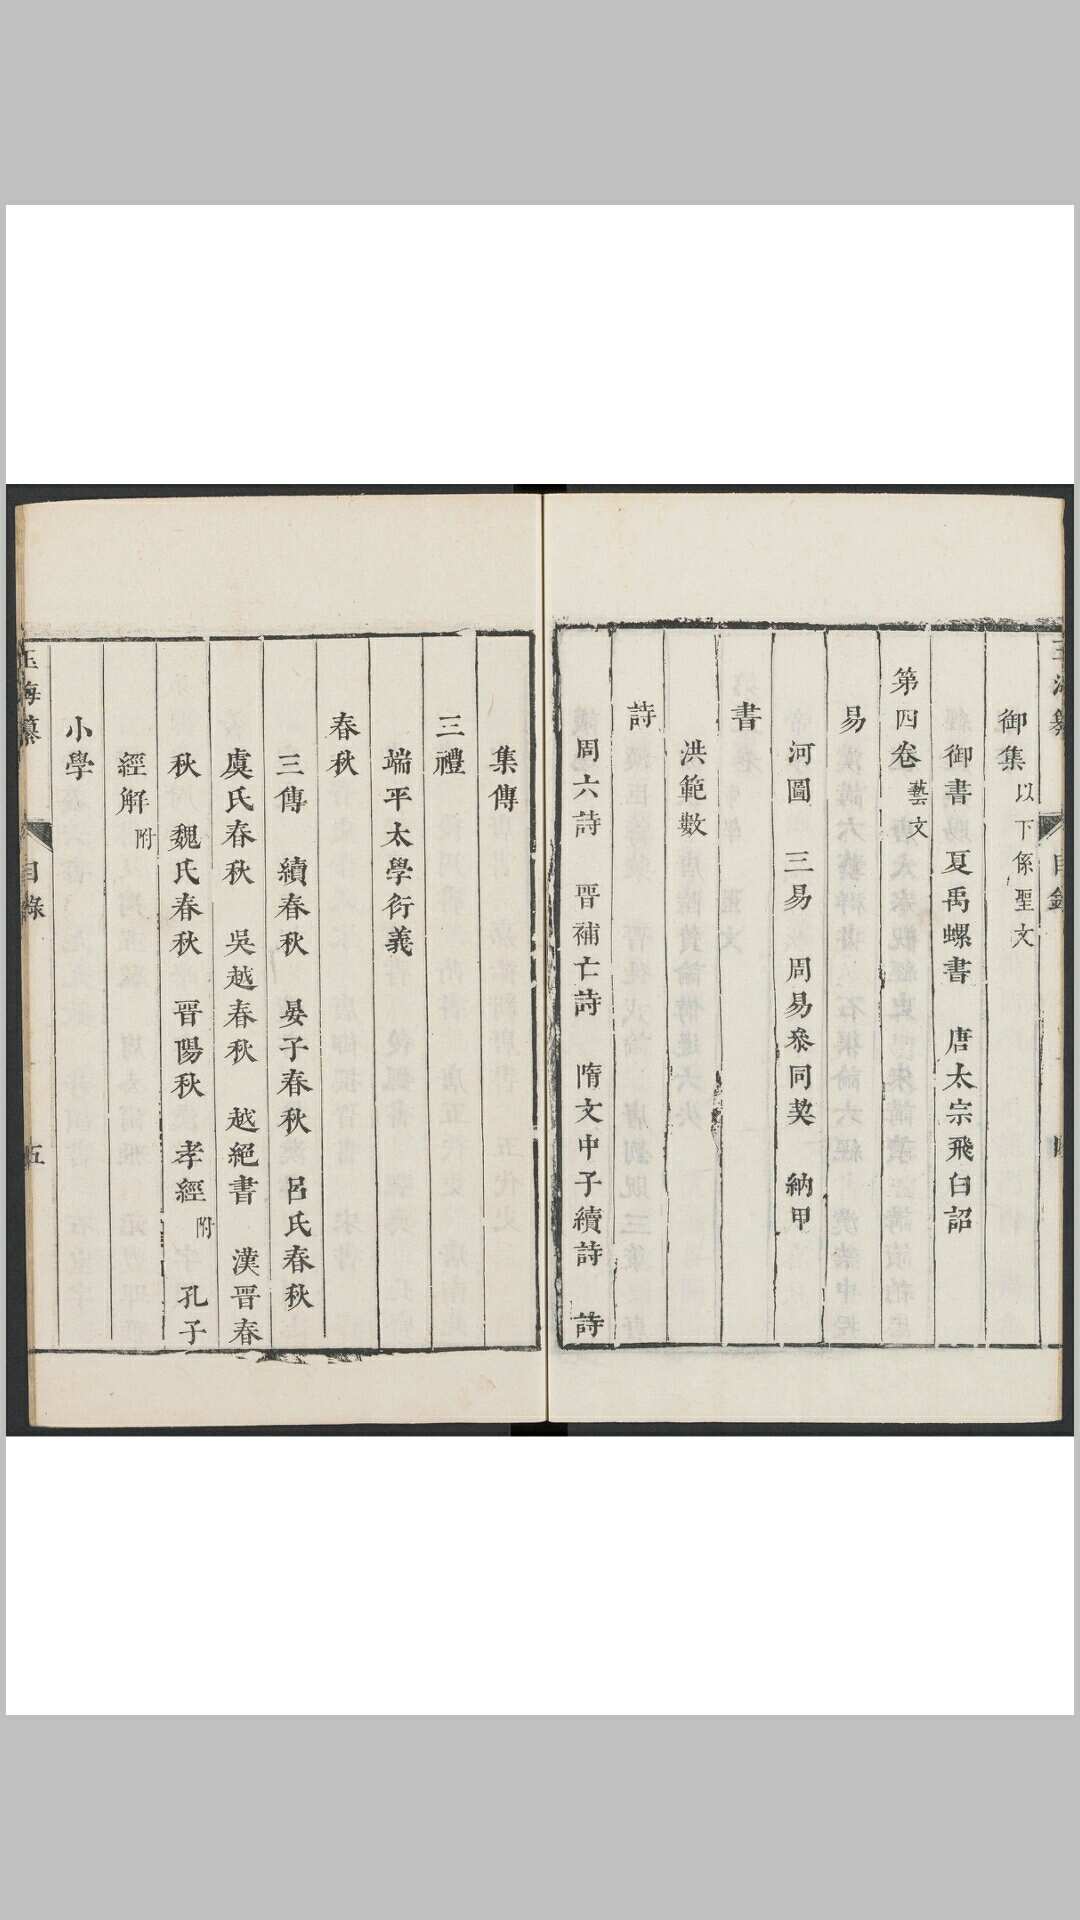 御集以下係聖文
御書 夏禹螺書 唐太宗飛白詔
第四卷藝文
易
河圖 三易 周易叅同契 納甲
書
洪範數
詩
周六詩 晋補亡詩 隋文中子續詩 詩
集傳
三禮
端平太學衍義
春秋
三傳 續春秋 晏子春秋 呂氏春秋
虞氏春秋 吳越春秋 越絕書 漢晋春
秋 魏氏春秋 晋陽秋 孝經附 孔子
經解附
小學
玉海纂 目錄 五